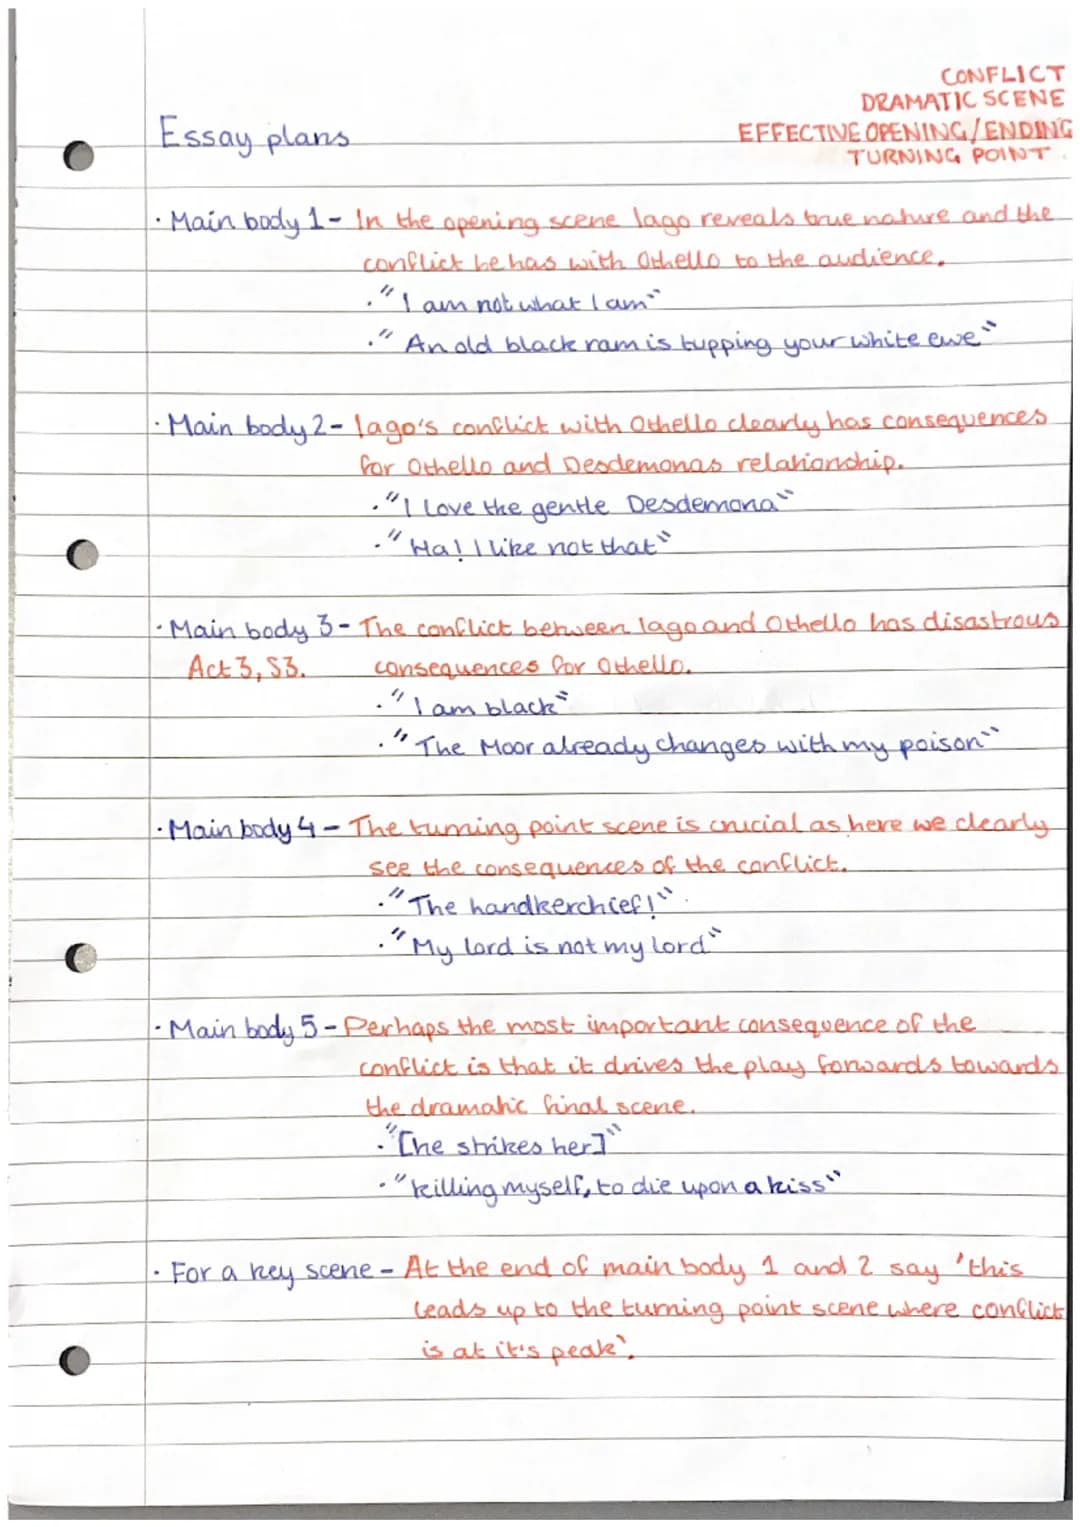 CONFLICT
DRAMATIC SCENE
Essay plans
EFFECTIVE OPENING/ENDING
TURNING POINT.
· Main body 1 - In the opening scene Iago reveals true nature and the
conflict he has with Othello to the audience.
· "I am not what I am"
· "An old black ram is tupping your white ewe"
· Main body 2 - Iago's conflict with Othello clearly has consequences
for Othello and Desdemonas relationship.
· "I love the gentle Desdemona"
· "Ha! I like not that"
· Main body 3 - The conflict between Iago and Othello has disastrous
Act 3, S3. consequences for Othello.
· "I am black"
· "The Moor already changes with my poison"
· Main body 4 - The turning point scene is crucial as here we clearly
see the consequences of the conflict.
· "The handkerchief!"
· "My lord is not my lord"
· Main body 5 - Perhaps the most important consequence of the
conflict is that it drives the play forwards towards
the dramatic final scene.
· "[he strikes her]"
· "killing myself, to die upon a kiss"
· For a key scene - At the end of main body 1 and 2 say 'this
leads up to the turning point scene where conflict
is at it's peak'.